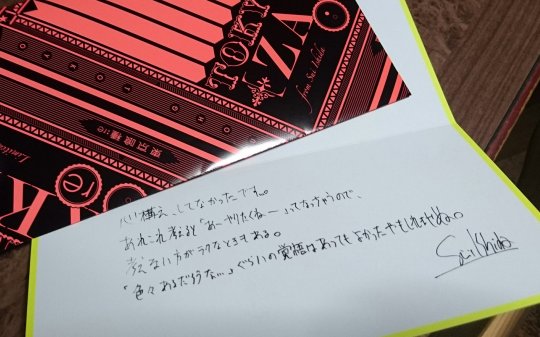 TOKY
[ZA
from Sui Ishida
東京喰種:re
Limited
re
心構え、してなかったです。
あれこれ考えると「あーやりたくねー」ってなっちゃうので、
考えない方がラクなときもある。
「色々あるだろうな…」ぐらいの覚悟はあってもよかったかもしれませんね。
Sui Ishida